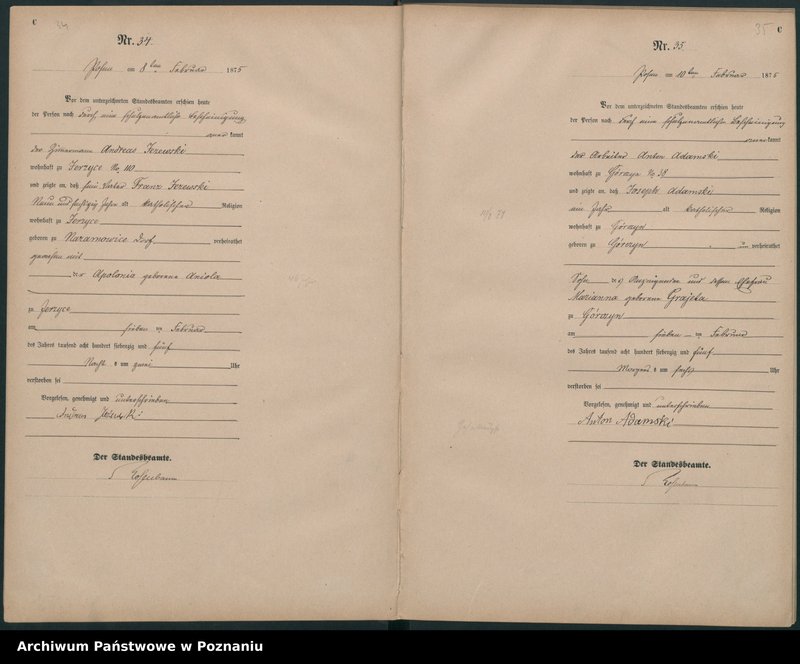 C
34
Nr. 34.
Posen am 8ten Februar 1875
Vor dem unterzeichneten Standesbeamten erschien heute
der Person nach durch eine schulzenamtliche Bescheinigung
anerkannt
der Zimmermann Andreas Jezewski
wohnhaft zu Jerzyce No 110
und zeigte an, daß sein Vater Franz Jezewski
Neun und fünfzig Jahre alt katholischer Religion
wohnhaft zu Jerzyce
geboren zu Naramowice Dorf verheirathet
gewesen mit
der Apolonia geborene Aniola
zu Jerzyce
am sieben ten Februar
des Jahres tausend acht hundert siebenzig und fünf
Nachts um zwei Uhr
verstorben sei
Vorgelesen, genehmigt und unterschrieben
Andreas
Der Standesbeamte.
35
C
Nr. 35.
Posen am 10ten Februar 1875
Vor dem unterzeichneten Standesbeamten erschien heute
der Person nach durch eine schulzenamtliche Bescheinigung
anerkannt
der Arbeiter Anton Adamski
wohnhaft zu Górczyn No 38
und zeigte an, daß Joseph Adamski,
ein Jahr alt katholischer Religion
wohnhaft zu Górczyn
geboren zu Górczyn, unverheirathet
Sohn des Anzeigenden und dessen Ehefrau
Marianna geborene Grajeta
zu Górczyn
am sieben ten Februar
des Jahres tausend acht hundert siebenzig und fünf
Morgens um sechs Uhr
verstorben sei
Vorgelesen, genehmigt und unterschrieben
Anton Adamski
Der Standesbeamte.
Archiwum Państwowe w Poznaniu